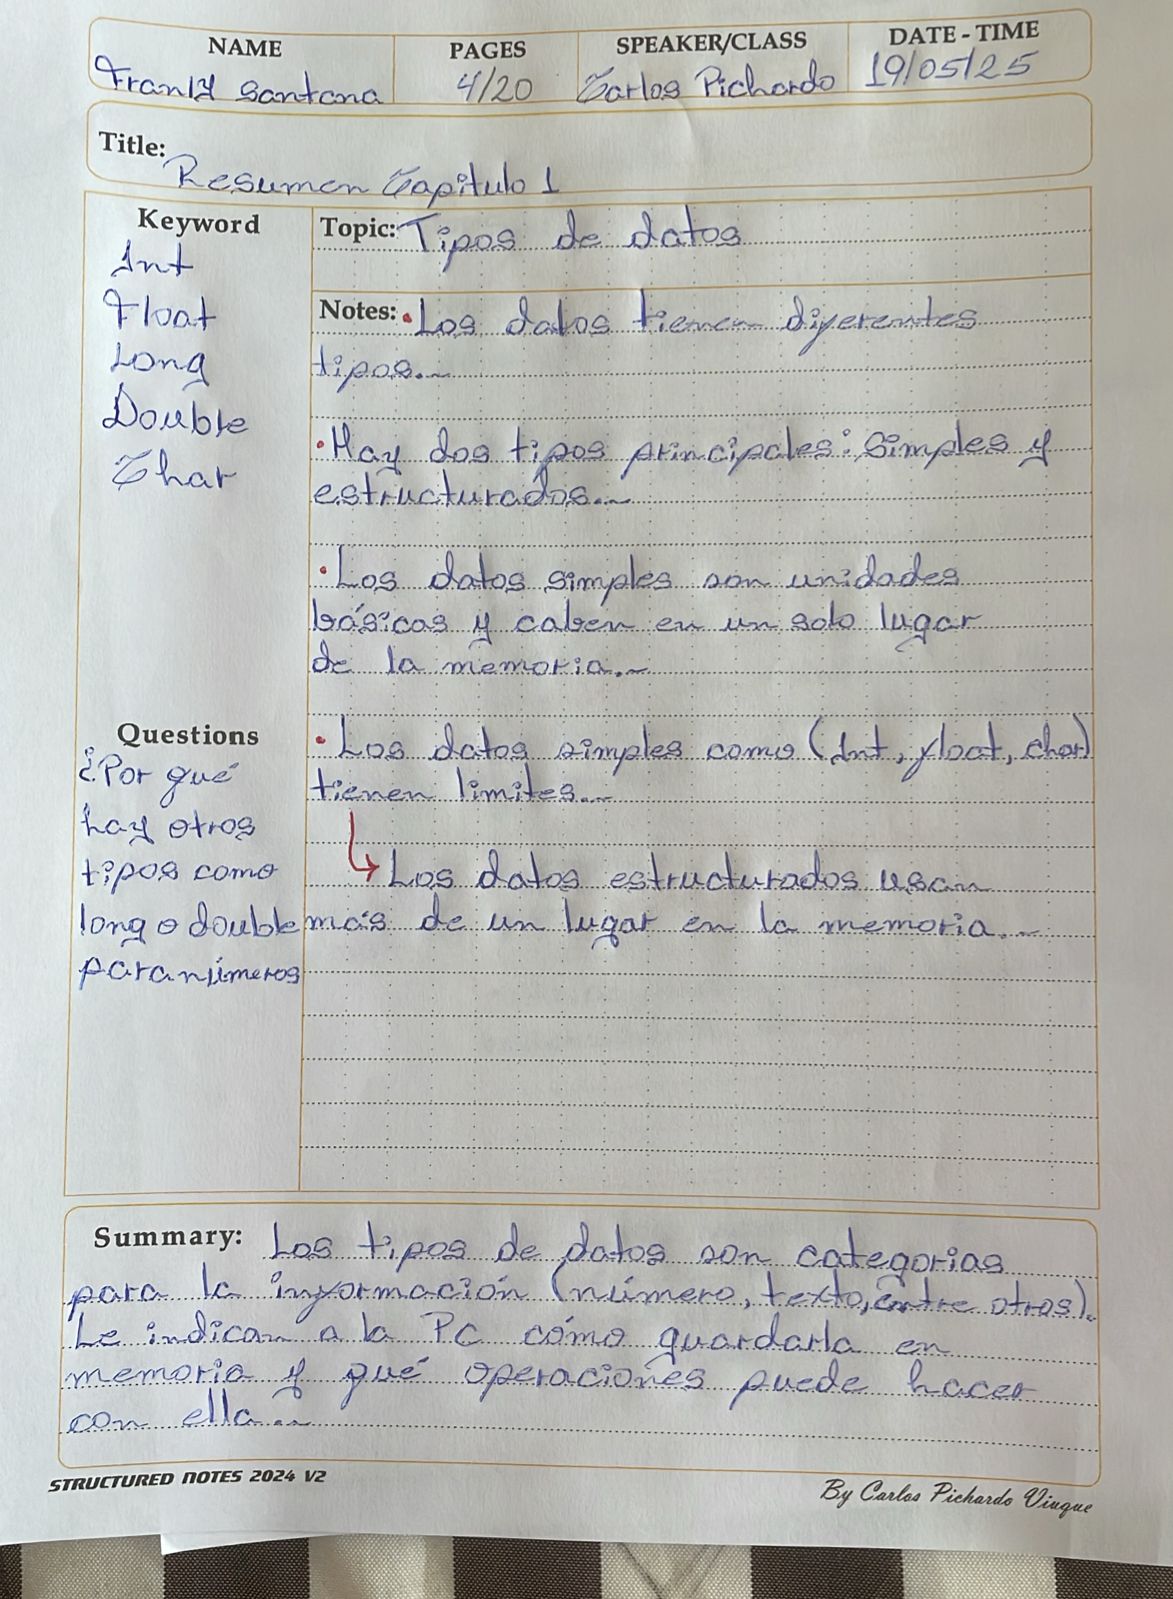 NAME PAGES SPEAKER/CLASS DATE - TIME
Franly Santana 4/20 Carlos Pichardo 19/05/25
Title:
Resumen Capitulo 1
Keyword
Int
Float
Long
Double
Char
Questions
¿Por qué
hay otros
tipos como
long o double
para números
Topic: Tipos de datos
Notes: • Los datos tienen diferentes
tipos..
• Hay dos tipos principales: simples y
estructurados..
• Los datos simples son unidades
básicas y caben en un solo lugar
de la memoria..
• Los datos simples como (Int, float, char)
tienen limites..
Los datos estructurados usan
más de un lugar en la memoria..
Summary: Los tipos de datos son categorias
para la información (número, texto, entre otros).
Le indican a la PC cómo guardarla en
memoria y qué operaciones puede hacer
con ella..
STRUCTURED NOTES 2024 V2
By Carlos Pichardo Viuque